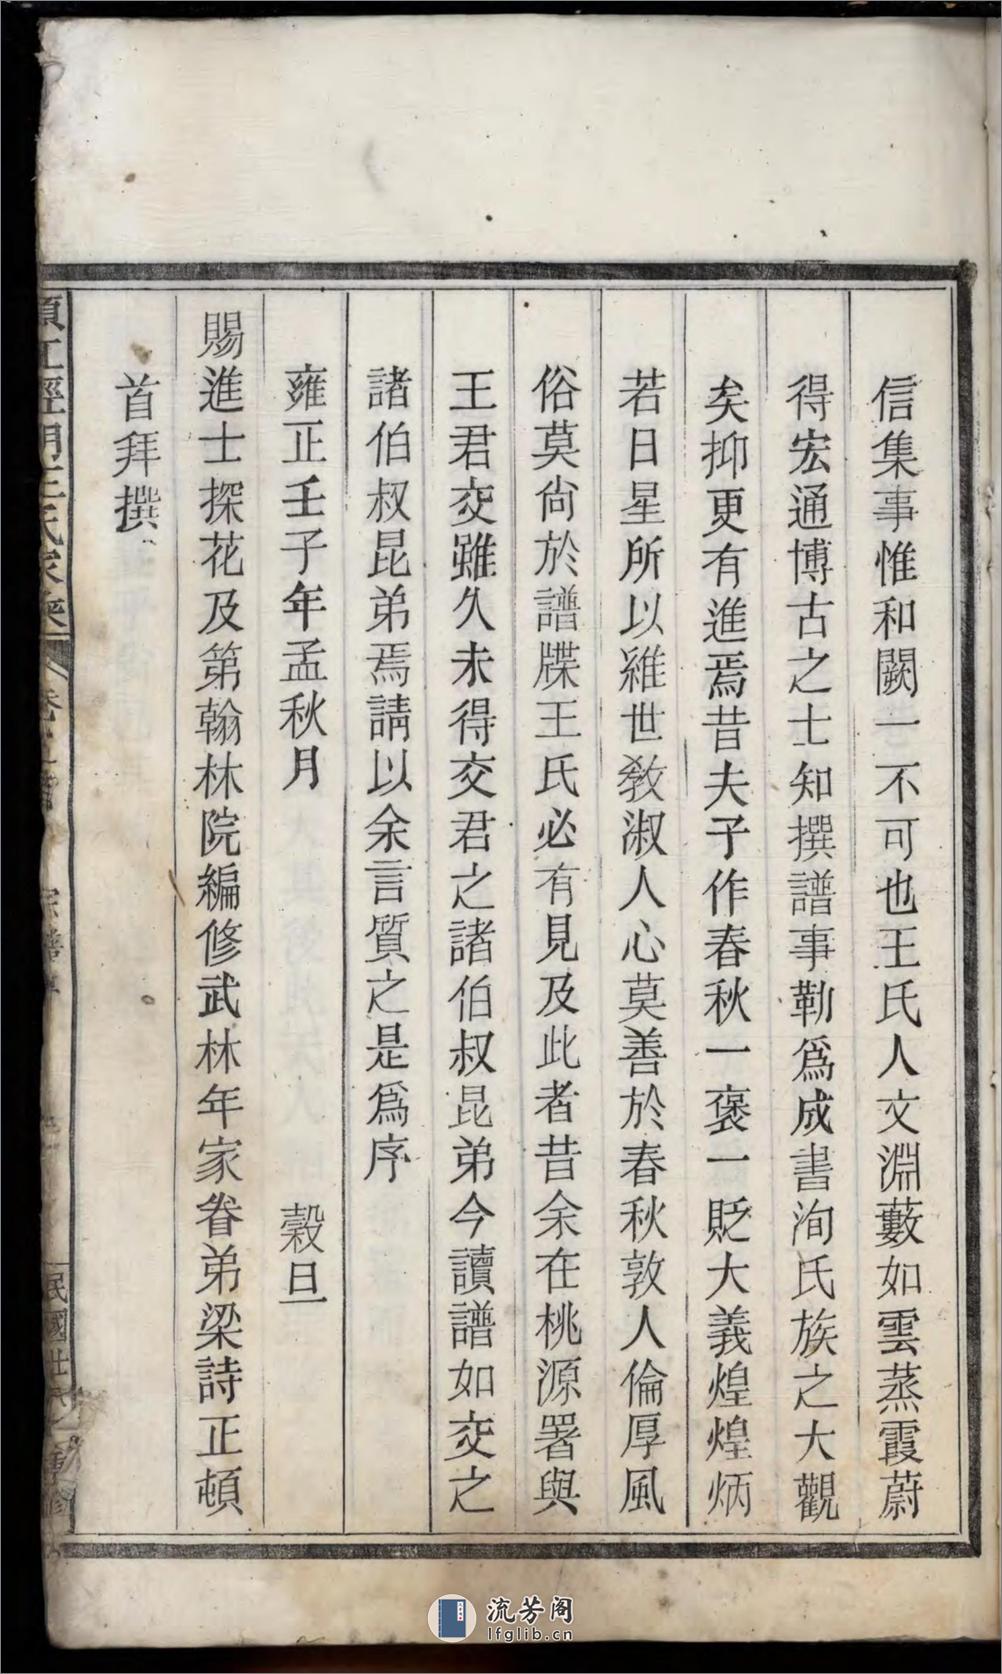 信集事惟和闕一不可也王氏人文淵藪如雲蒸霞蔚
得宏通博古之士知撰譜事勒爲成書洵氏族之大觀
矣抑更有進焉昔夫子作春秋一褒一貶大義煌煌炳
若日星所以維世敎淑人心莫善於春秋敦人倫厚風
俗莫尙於譜牒王氏必有見及此者昔余在桃源署與
王君交雖久未得交君之諸伯叔昆弟今讀譜如交之
諸伯叔昆弟焉請以余言質之是爲序
雍正壬子年孟秋月 穀旦
賜進士探花及第翰林院編修武林年家眷弟梁詩正頓
首拜撰
王氏家乘 宗譜序 民國 重修
流芳阁
lfglib.cn